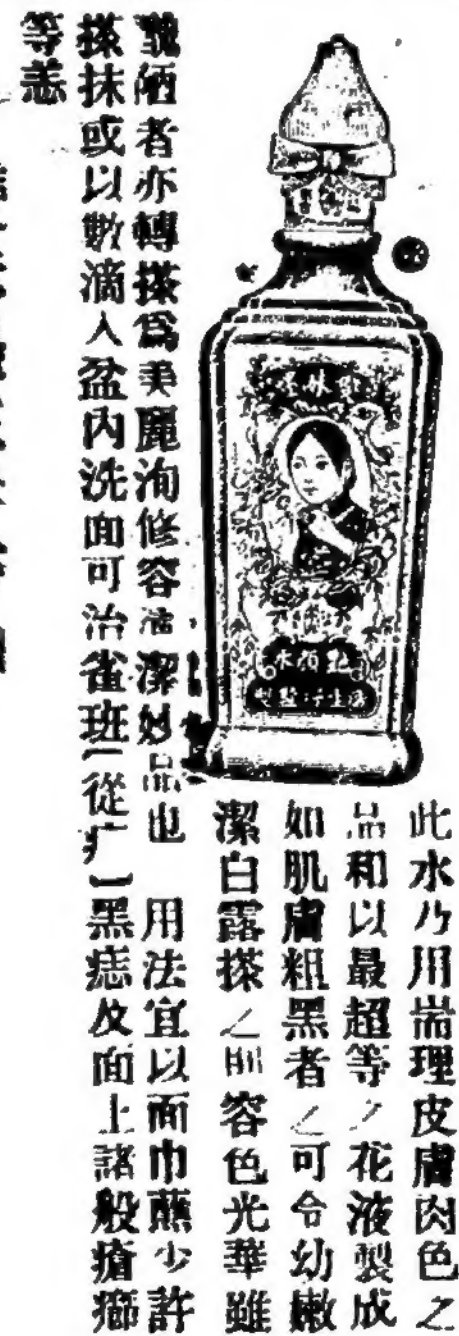 此水乃用耑理皮膚肉色之
品和以最超等之花液製成
如肌膚粗黑者之可令幼嫩
潔白露搽之則容色光華雖
醜陋者亦轉搽爲美麗洵修容清潔妙品也 用法宜以面巾蘸少許
搽抹或以數滴入盆內洗面可治雀班[從疒]黑痣及面上諸般瘡癤
等恙
艶顔水